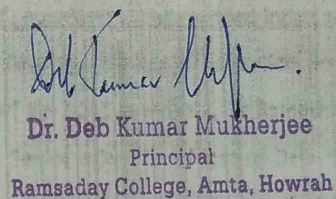 Deb Kumar Mukherjee.
Dr. Deb Kumar Mukherjee
Principal
Ramsaday College, Amta, Howrah